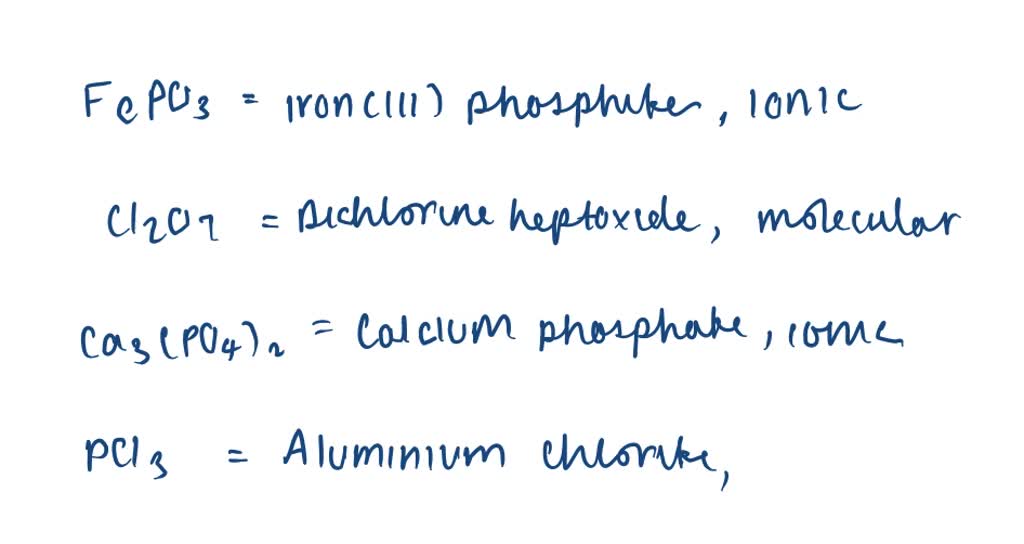 FePO3 = iron(III) phosphite, ionic
Cl2O7 = Dichlorine heptoxide, molecular
Ca3(PO4)2 = Calcium phosphate, ionic
PCl3 = Aluminium chlorite,